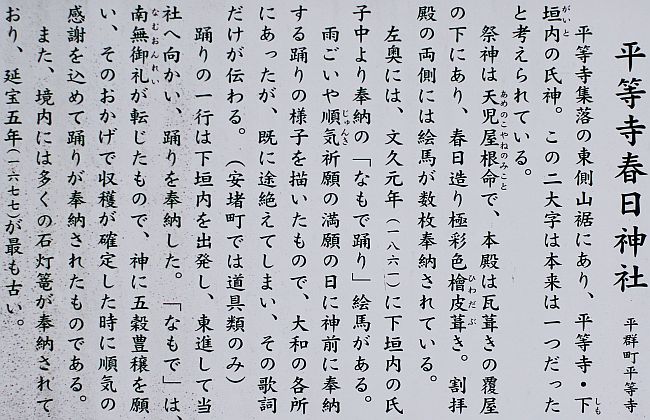 平等寺春日神社
平群町平等寺
平等寺集落の東側山裾にあり、平等寺・下
垣内の氏神。この二大字は本来は一つだった
と考えられている。
祭神は天児屋根命で、本殿は瓦葺きの覆屋
の下にあり、春日造り極彩色檜皮葺き。割拝
殿の両側には絵馬が数枚奉納されている。
左奥には、文久元年(一八六一)に下垣内の氏
子中より奉納の「なもで踊り」絵馬がある。
雨ごいや順気祈願の満願の日に神前に奉納
する踊りの様子を描いたもので、大和の各所
にあったが、既に途絶えてしまい、その歌詞
だけが伝わる。(安堵町では道具類のみ)
踊りの一行は下垣内を出発し、東進して当
社へ向かい、踊りを奉納した。「なもで」は、
南無御礼が転じたもので、神に五穀豊穣を願
い、そのおかげで収穫が確定した時に順気の
感謝を込めて踊りが奉納されたものである。
また、境内には多くの石灯篭が奉納されて
おり、延宝五年(一六七七)が最も古い。